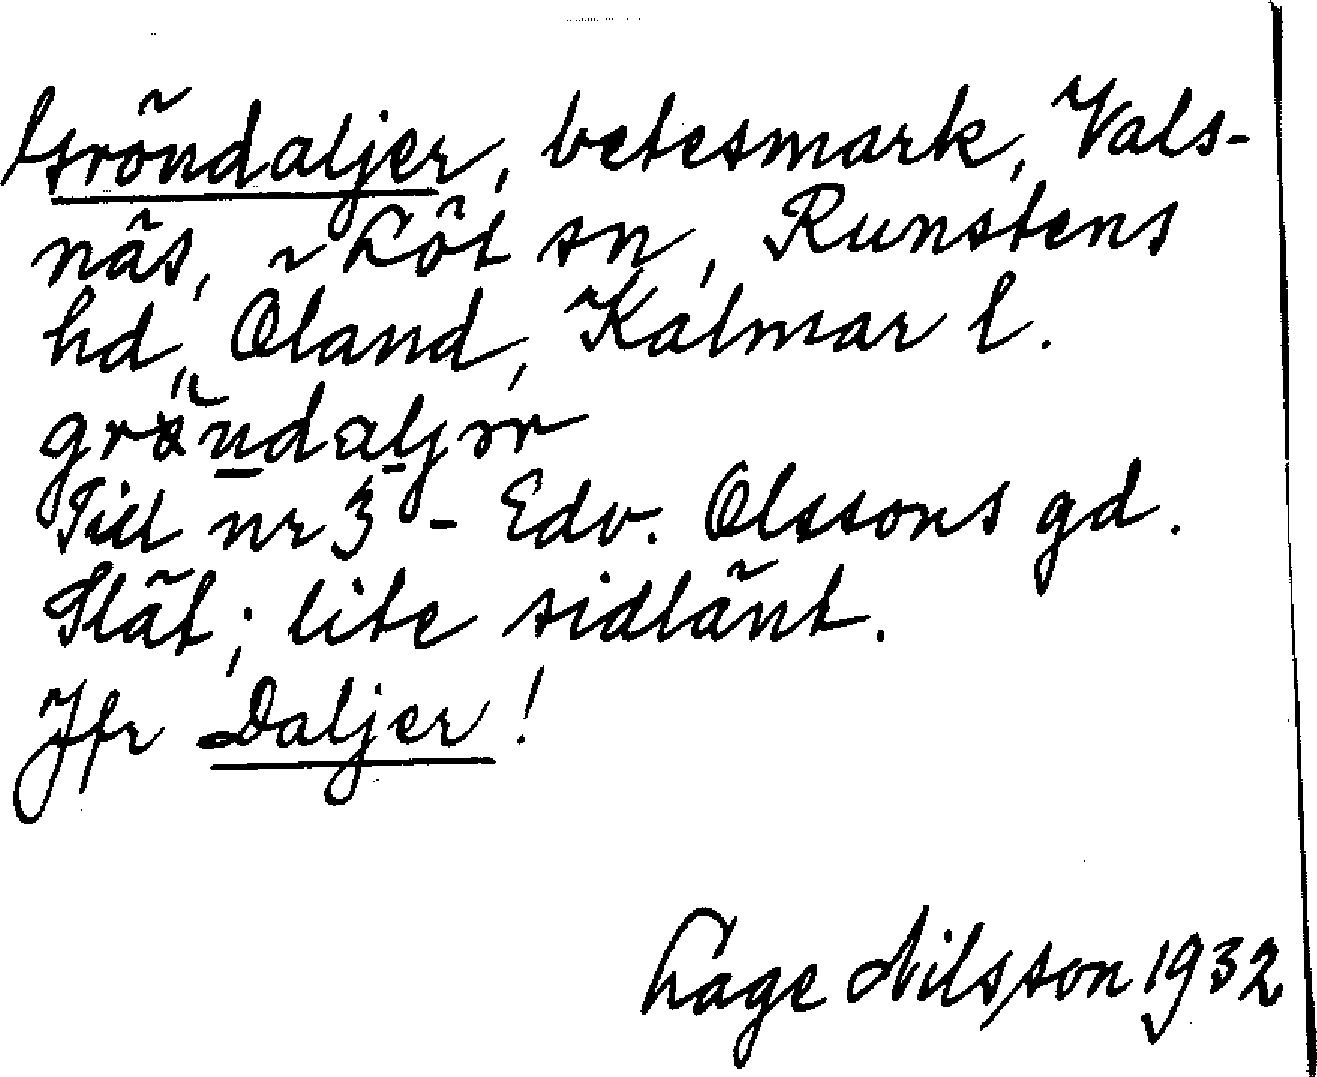 Gröndaljer, betesmark, Vals-
näs, Löt sn, Runstens
hd, Öland, Kalmar l.
Till nr 3 - Edv. Olssons gd.
Slät; lite sidlänt.
Jfr Daljer!
Lage Nilsson 1932